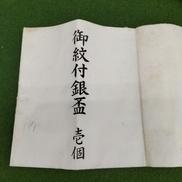 御紋付銀盃 壱個